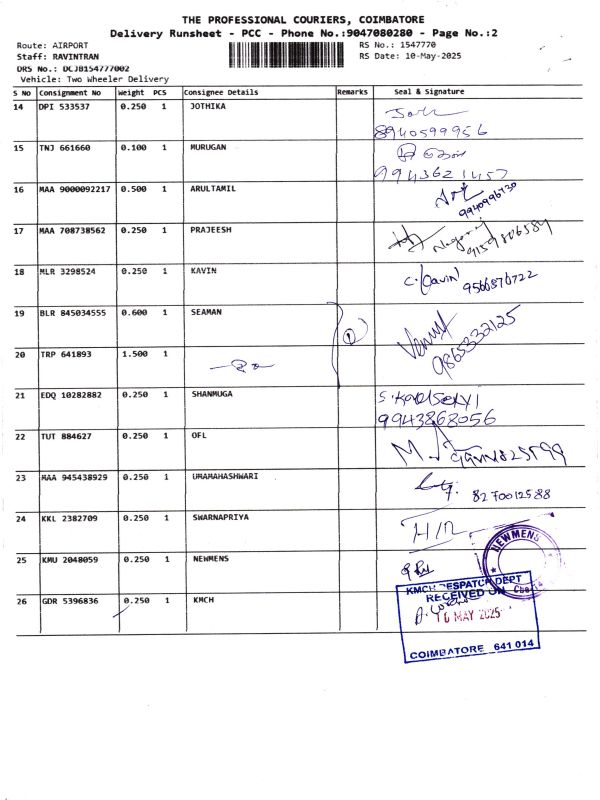 THE PROFESSIONAL COURIERS, COIMBATORE
Delivery Runsheet - PCC - Phone No.:9047080280 - Page No.:2
Route: AIRPORT
RS No.: 1547770
Staff: RAVINTRAN
RS Date: 10-May-2025
DRS No.: DCJB154777002
Vehicle: Two Wheeler Delivery
S No Consignment No Weight PCS Consignee Details Remarks Seal & Signature
14 DPI 533537 0.250 1 JOTHIKA
8940599956
15 TNJ 661660 0.100 1 MURUGAN
9943621457
16 MAA 9000092217 0.500 1 ARULTAMIL
9940996730
17 MAA 708738562 0.250 1 PRAJEESH
9159806589
18 MLR 3298524 0.250 1 KAVIN
9566876722
19 BLR 845034555 0.600 1 SEAMAN
1
9865332125
20 TRP 641893 1.500 1
21 EDQ 10282882 0.250 1 SHANMUGA
9943868056
22 TUT 884627 0.250 1 OFL
23 MAA 945438929 0.250 1 UMAMAHASHWARI
8270012588
24 KKL 2382709 0.250 1 SWARNAPRIYA
25 KMU 2048059 0.250 1 NEWMENS
NEWMENS
26 GDR 5396836 0.250 1 KMCH
KMCH DESPATCH DEPT
RECEIVED ON
10 MAY 2025
COIMBATORE 641 014